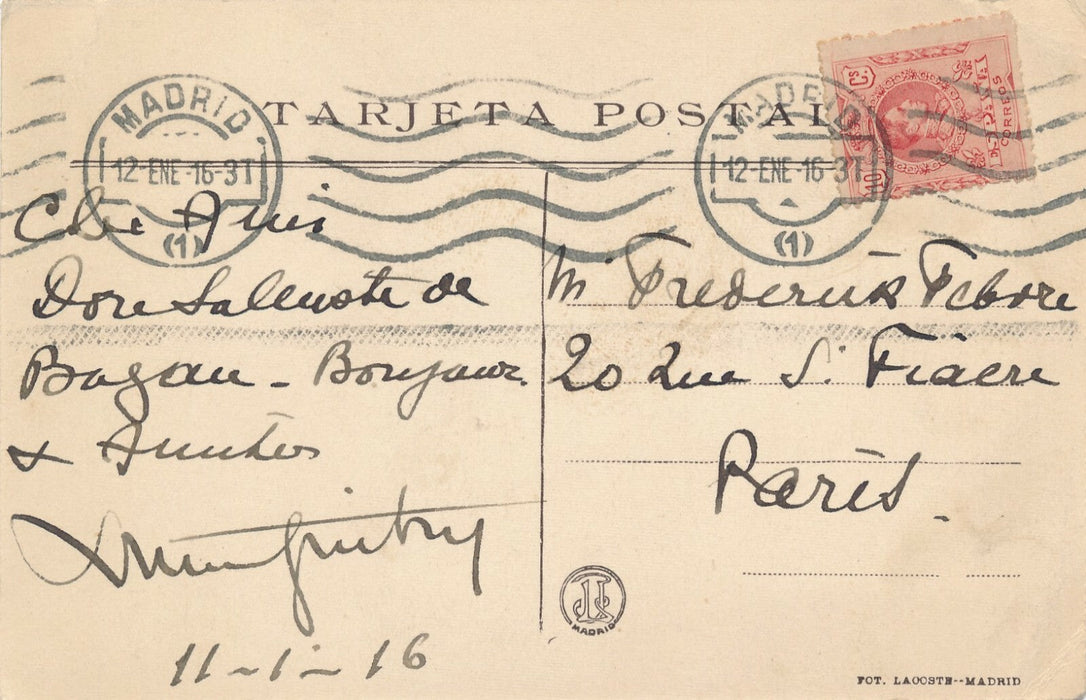 TARJETA POSTAL
MADRID
12-ENE-16-3T
(1)
MADRID
12-ENE-16-3T
(1)
CORREOS
10 Cs
Cher Ami
Don Salluste de
Bazan - Bonjour
& Amitiés
11-1-16
M Frederik Febvre
20 Rue S. Fiacre
Paris.
MADRID
FOT. LACOSTE--MADRID